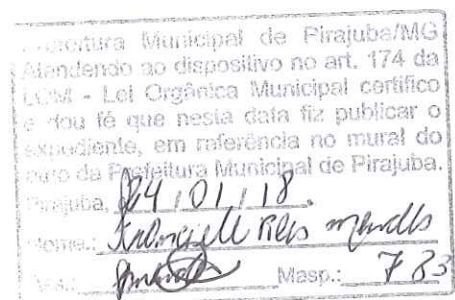 Prefeitura Municipal de Pirajuba/MG
Atendendo ao dispositivo no art. 174 da
LOM - Lei Orgânica Municipal certifico
e dou fé que nesta data fiz publicar o
expediente, em referência no mural do
da Prefeitura Municipal de Pirajuba.
Pirajuba, 24 / 01 / 18.
Nome.: Reis
Ass.: Masp.: 783